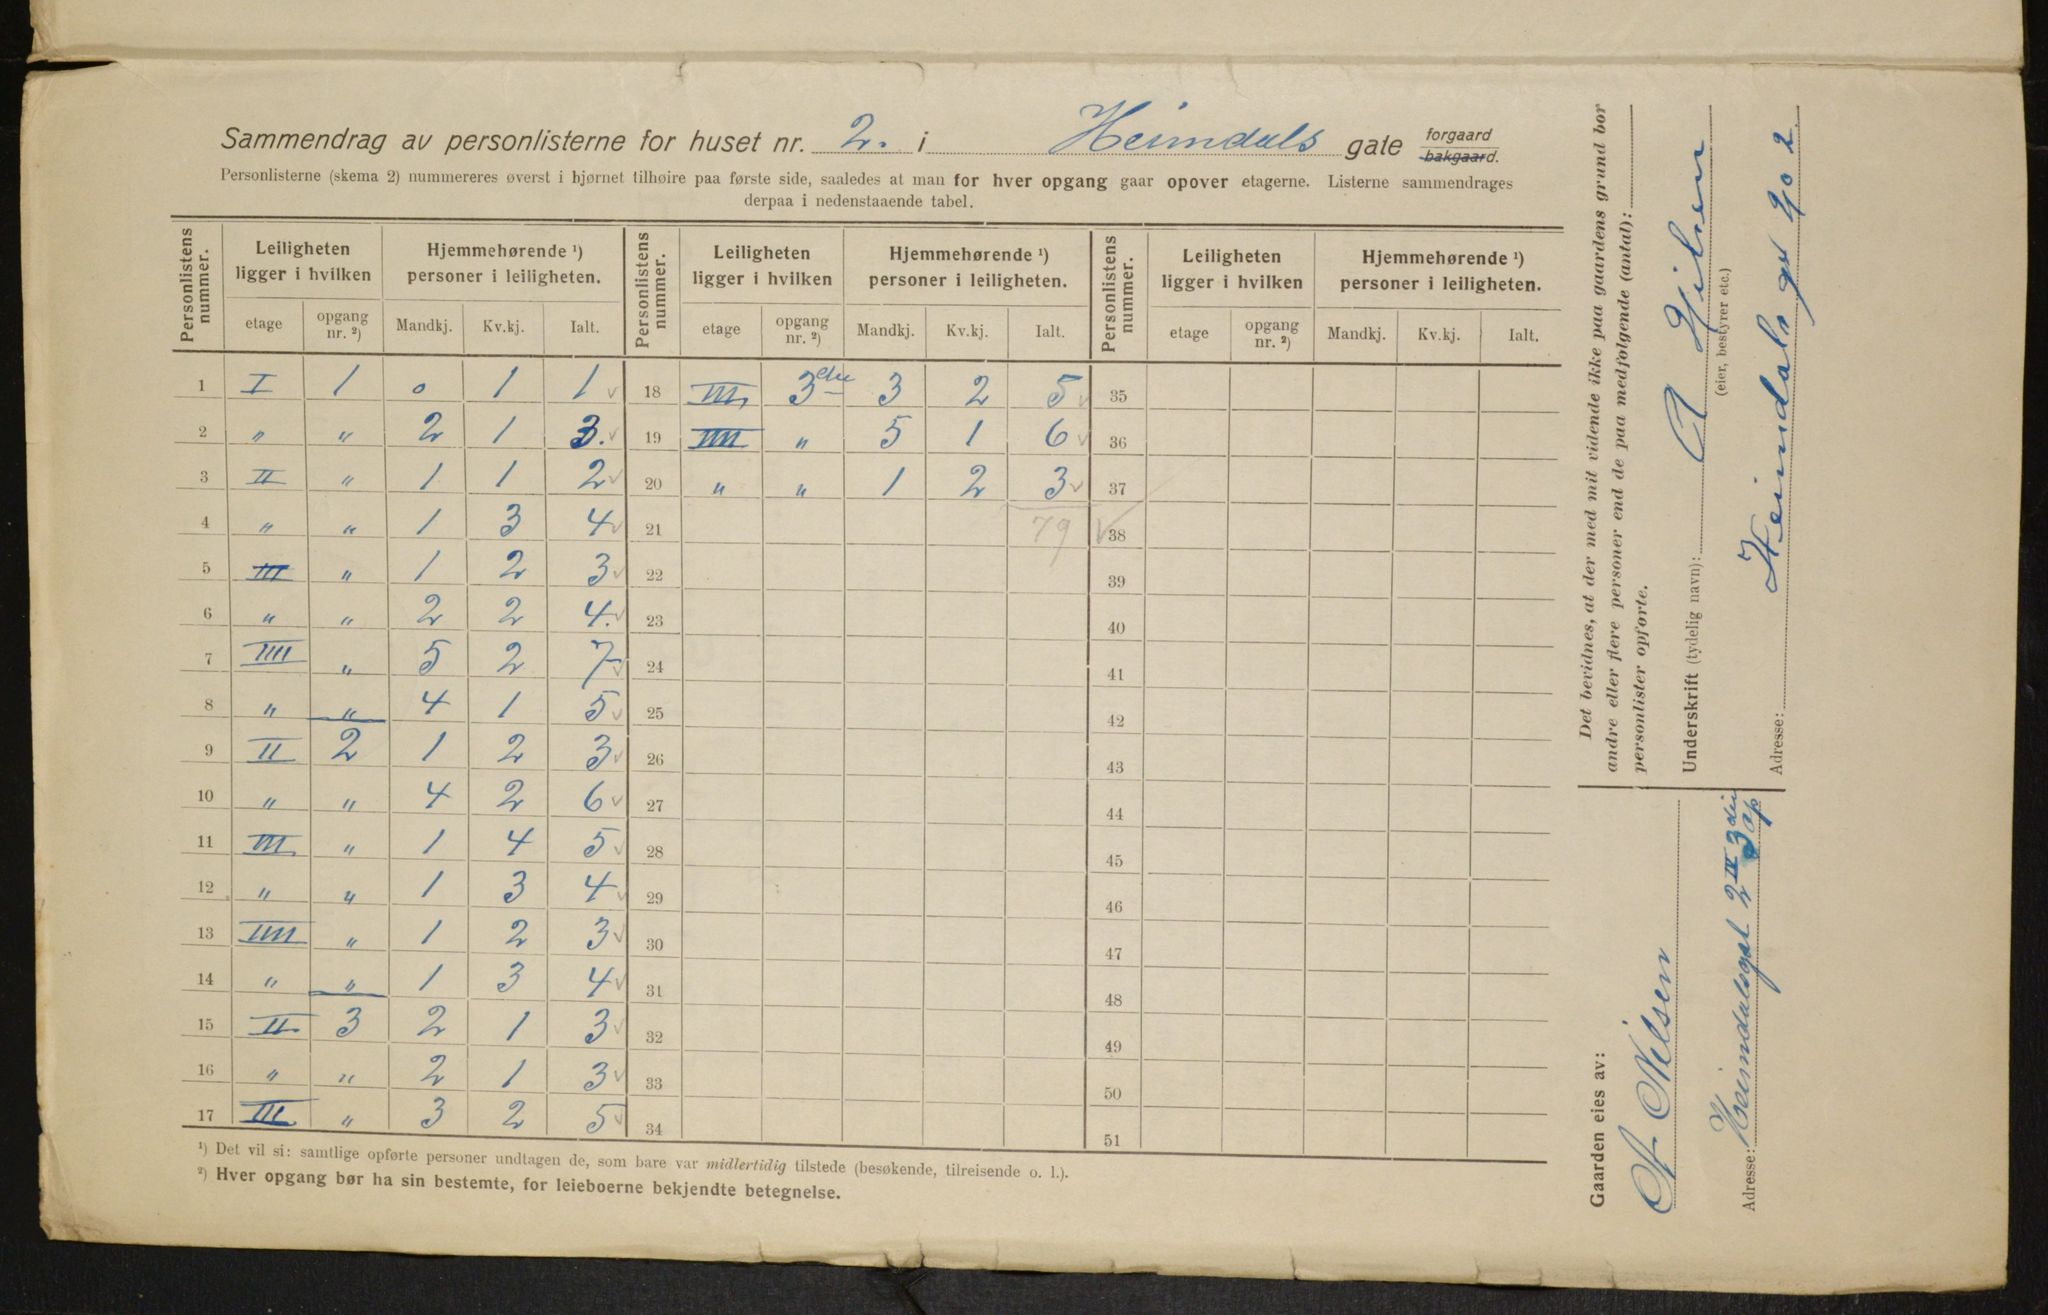 Sammendrag av personlisterne for huset nr. 2. i Heimdals gate forgaard bakgaard.
Personlisterne (skema 2) nummereres øverst i hjørnet tilhøire paa første side, saaledes at man for hver opgang gaar opover etagerne. Listerne sammendrages
derpaa i nedenstaaende tabel.
Personlistens nummer. Leiligheten ligger i hvilken Hjemmehørende ¹) personer i leiligheten. Personlistens nummer. Leiligheten ligger i hvilken Hjemmehørende ¹) personer i leiligheten. Personlistens nummer. Leiligheten ligger i hvilken Hjemmehørende ¹) personer i leiligheten.
etage opgang nr. ²) Mandkj. Kv.kj. Ialt. etage opgang nr. ²) Mandkj. Kv.kj. Ialt. etage opgang nr. ²) Mandkj. Kv.kj. Ialt.
1 I 1 0 1 1 18 III 3die 3 2 5 35
2 " " 2 1 3. 19 IIII " 5 1 6 36
3 II " 1 1 2 20 " " 1 2 3 37
4 " " 1 3 4 21 79 38
5 III " 1 2 3 22 39
6 " " 2 2 4. 23 40
7 IIII " 5 2 7 24 41
8 " " 4 1 5 25 42
9 II 2 1 2 3 26 43
10 " " 4 2 6 27 44
11 III " 1 4 5 28 45
12 " " 1 3 4 29 46
13 IIII " 1 2 3 30 47
14 " " 1 3 4 31 48
15 II 3 2 1 3 32 49
16 " " 2 1 3 33 50
17 III " 3 2 5 34 51
¹) Det vil si: samtlige opførte personer undtagen de, som bare var midlertidig tilstede (besøkende, tilreisende o. l.).
²) Hver opgang bør ha sin bestemte, for leieboerne bekjendte betegnelse.
Det bevidnes, at der med mit vidende ikke paa gaardens grund bor
andre eller flere personer end de paa medfølgende (antal):
personlister opførte.
Underskrift (tydelig navn): A Nilsen
(eier, bestyrer etc.)
Adresse: Heimdals gt No 2
Gaarden eies av:
A. Nilsen
Adresse: Heimdalsgat 2 IV 3die op